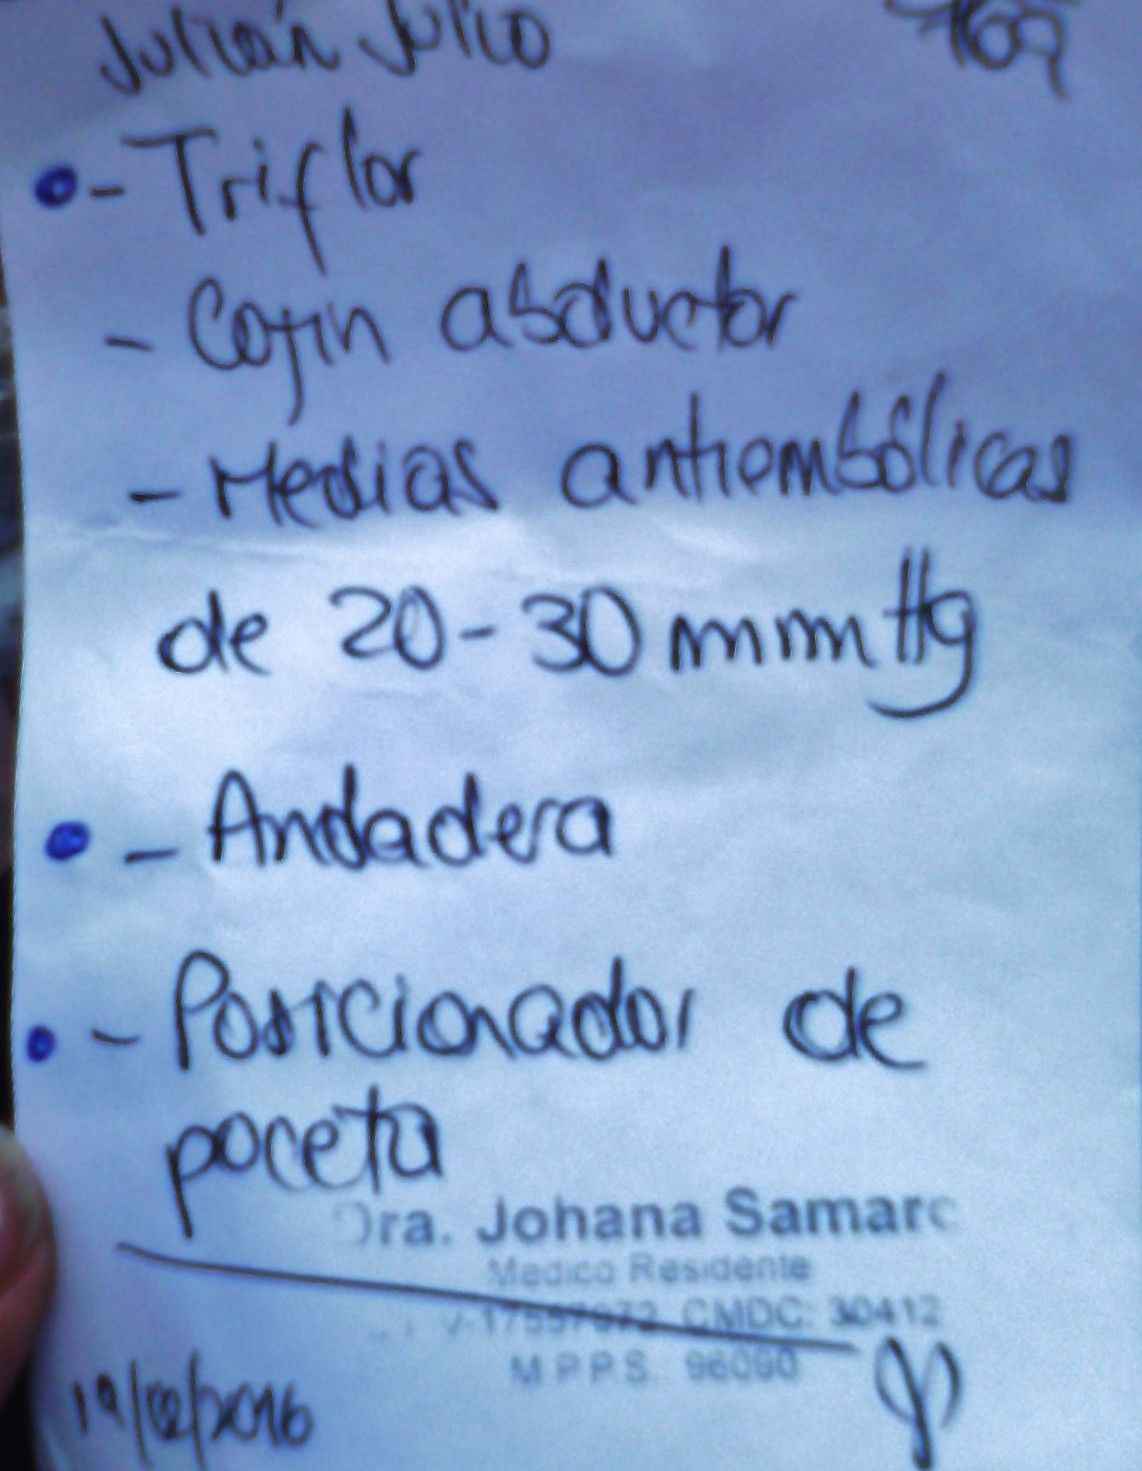 Julián Julio 169
- Triflor
- Cojin abductor
- Medias antiembólicas
de 20-30 mmHg
- Andadera
- Posicionador de
poceta
Dra. Johana Samarc
Medico Residente
V-17557972 CMDC: 30412
M.P.P.S. 96090
19/12/2016